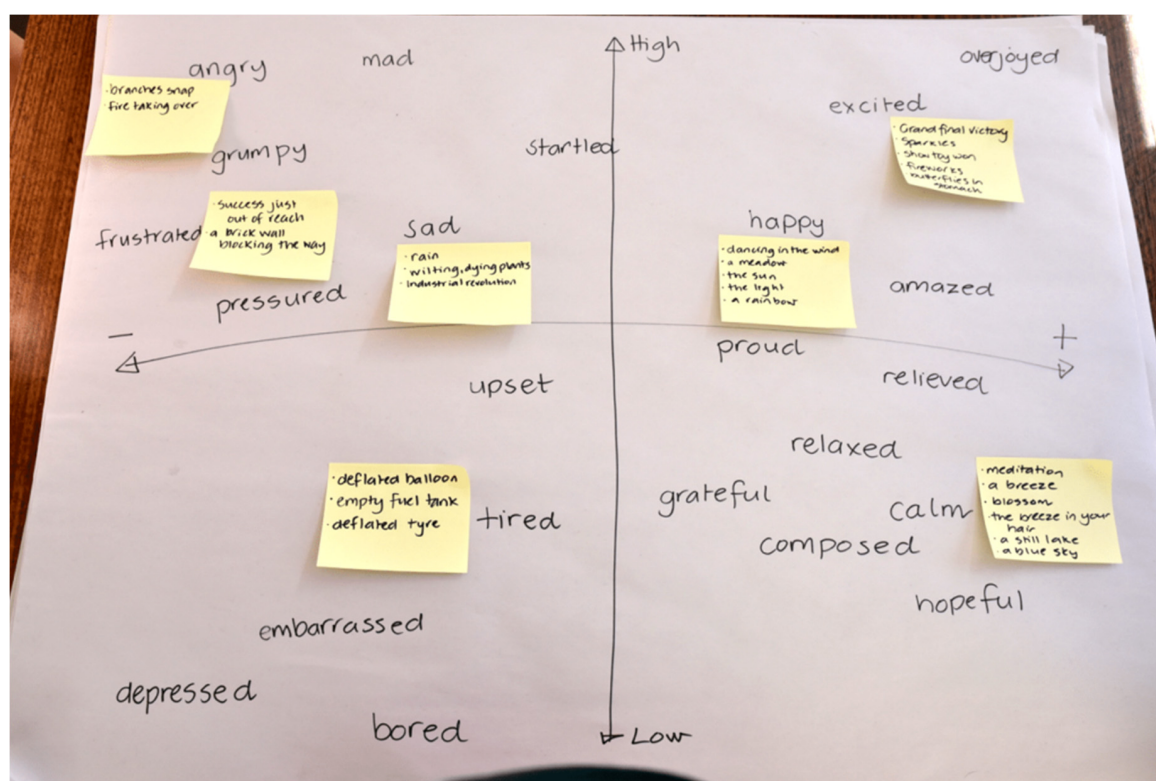 High
angry
mad
overjoyed
· branches snap
· fire taking over
excited
· Grand final victory
· Sparkles
· Show toy won
· fireworks
butterflies in
stomach
startled
grumpy
· success just
out of reach
· a brick wall
blocking the way
frustrated
sad
· rain
· wilting, dying plants
· industrial revolution
happy
· dancing in the wind
· a meadow
· the sun
· the light
· a rainbow
amazed
pressured
−
+
proud
relieved
upset
relaxed
· deflated balloon
· empty fuel tank
· deflated tyre
tired
grateful
calm
· meditation
· a breeze
· blossom
· the breeze in your
hair
· a still lake
· a blue sky
composed
hopeful
embarrassed
depressed
bored
Low